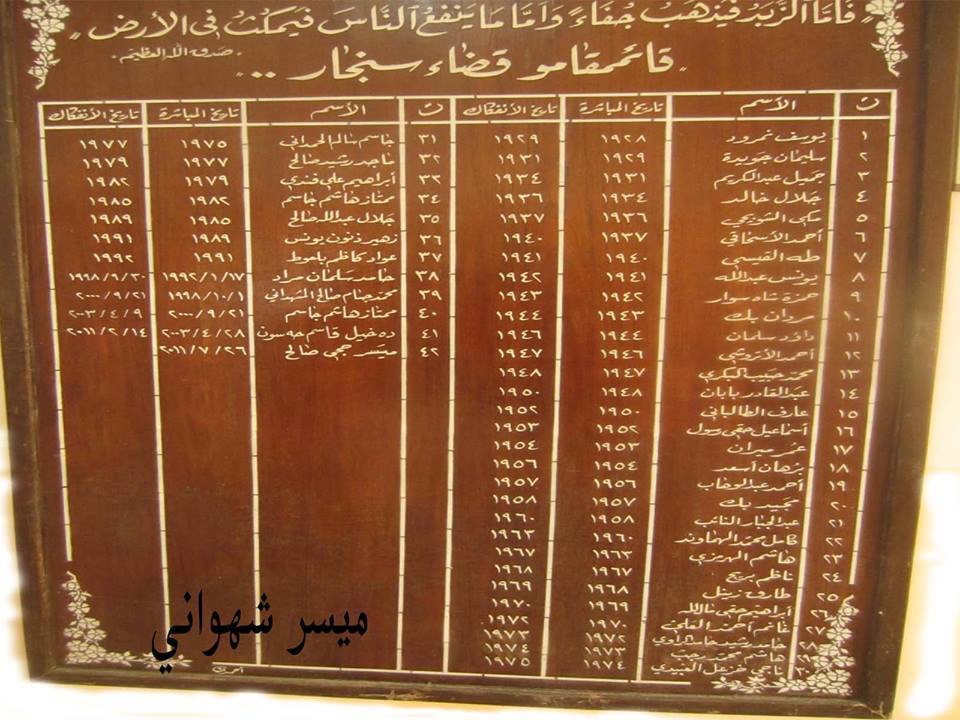 فَأَمَّا الزَّبَدُ فَيَذْهَبُ جُفَاءً وَأَمَّا مَا يَنْفَعُ النَّاسَ فَيَمْكُثُ فِي الْأَرْضِ
صدق الله العظيم
قائممقامو قضاء سنجار ..
ت الأسم تاريخ المباشرة تاريخ الأنفكاك ت الأسم تاريخ المباشرة تاريخ الأنفكاك
١ يوسف نمرود ١٩٢٨ ١٩٢٩
٢ سليمان جويدة ١٩٢٩ ١٩٣١
٣ جميل عبدالكريم ١٩٣١ ١٩٣٤
٤ جلال خالد ١٩٣٤ ١٩٣٦
٥ مكي الشوبجي ١٩٣٦ ١٩٣٧
٦ أحمد الأسحاقي ١٩٣٧ ١٩٤٠
٧ طه القيسي ١٩٤٠ ١٩٤١
٨ يونس عبدالله ١٩٤١ ١٩٤٢
٩ حمزة شاه سوار ١٩٤٢ ١٩٤٣
١٠ مردان بك ١٩٤٣ ١٩٤٤
١١ داؤد سلمان ١٩٤٤ ١٩٤٦
١٢ أحمد الأتروشي ١٩٤٦ ١٩٤٧
١٣ محمد حبيب البكري ١٩٤٧ ١٩٤٨
١٤ عبدالقادر بابان ١٩٤٨ ١٩٥٠
١٥ عارف الطالباني ١٩٥٠ ١٩٥٢
١٦ أسماعيل حقي رسول ١٩٥٢ ١٩٥٣
١٧ عمر ميران ١٩٥٣ ١٩٥٤
١٨ برهان أسعد ١٩٥٤ ١٩٥٦
١٩ أحمد عبدالوهاب ١٩٥٦ ١٩٥٧
٢٠ مجيد بك ١٩٥٧ ١٩٥٨
٢١ عبدالجبار النائب ١٩٥٨ ١٩٦٠
٢٢ كامل محمد النهاوند ١٩٦٠ ١٩٦٣
٢٣ هاشم الهرمزي ١٩٦٣ ١٩٦٧
٢٤ ناظم بريج ١٩٦٧ ١٩٦٨
٢٥ طارق زينل ١٩٦٨ ١٩٦٩
٢٦ أبراهيم حقي ١٩٦٩ ١٩٧٠
٢٧ غانم أحمد العلي ١٩٧٠ ١٩٧٢
٢٨ حامد الراوي ١٩٧٢ ١٩٧٣
هاشم محمد رجب ١٩٧٣ ١٩٧٤
٣٠ ناجي خزعل العبيدي ١٩٧٤ ١٩٧٥
٣١ جاسم سالم الحمداني ١٩٧٥ ١٩٧٧
٣٢ ماجد رشيد صالح ١٩٧٧ ١٩٧٩
٣٣ أبراهيم علي فندي ١٩٧٩ ١٩٨٢
٣٤ ممتاز هاشم جاسم ١٩٨٢ ١٩٨٥
٣٥ جلال عبدالله صالح ١٩٨٥ ١٩٨٩
٣٦ زهير ذنون يونس ١٩٨٩ ١٩٩١
٣٧ عواد كاظم بلعوط ١٩٩١ ١٩٩٢
٣٨ حامد سلمان مراد ١٩٩٢/١/١٧ ١٩٩٨/٩/٣٠
٣٩ محمد ختام صالح المشهداني ١٩٩٨/١٠/١ ٢٠٠٠/٩/٢١
٤٠ ممتاز هاشم جاسم ٢٠٠٠/٩/٢١ ٢٠٠٣/٤/٩
٤١ ده خيل قاسم حه سون ٢٠٠٣/٤/٢٨ ٢٠١١/٢/١٤
٤٢ ميسر حجي صالح ٢٠١١/٧/٢٦
ميسر شهواني